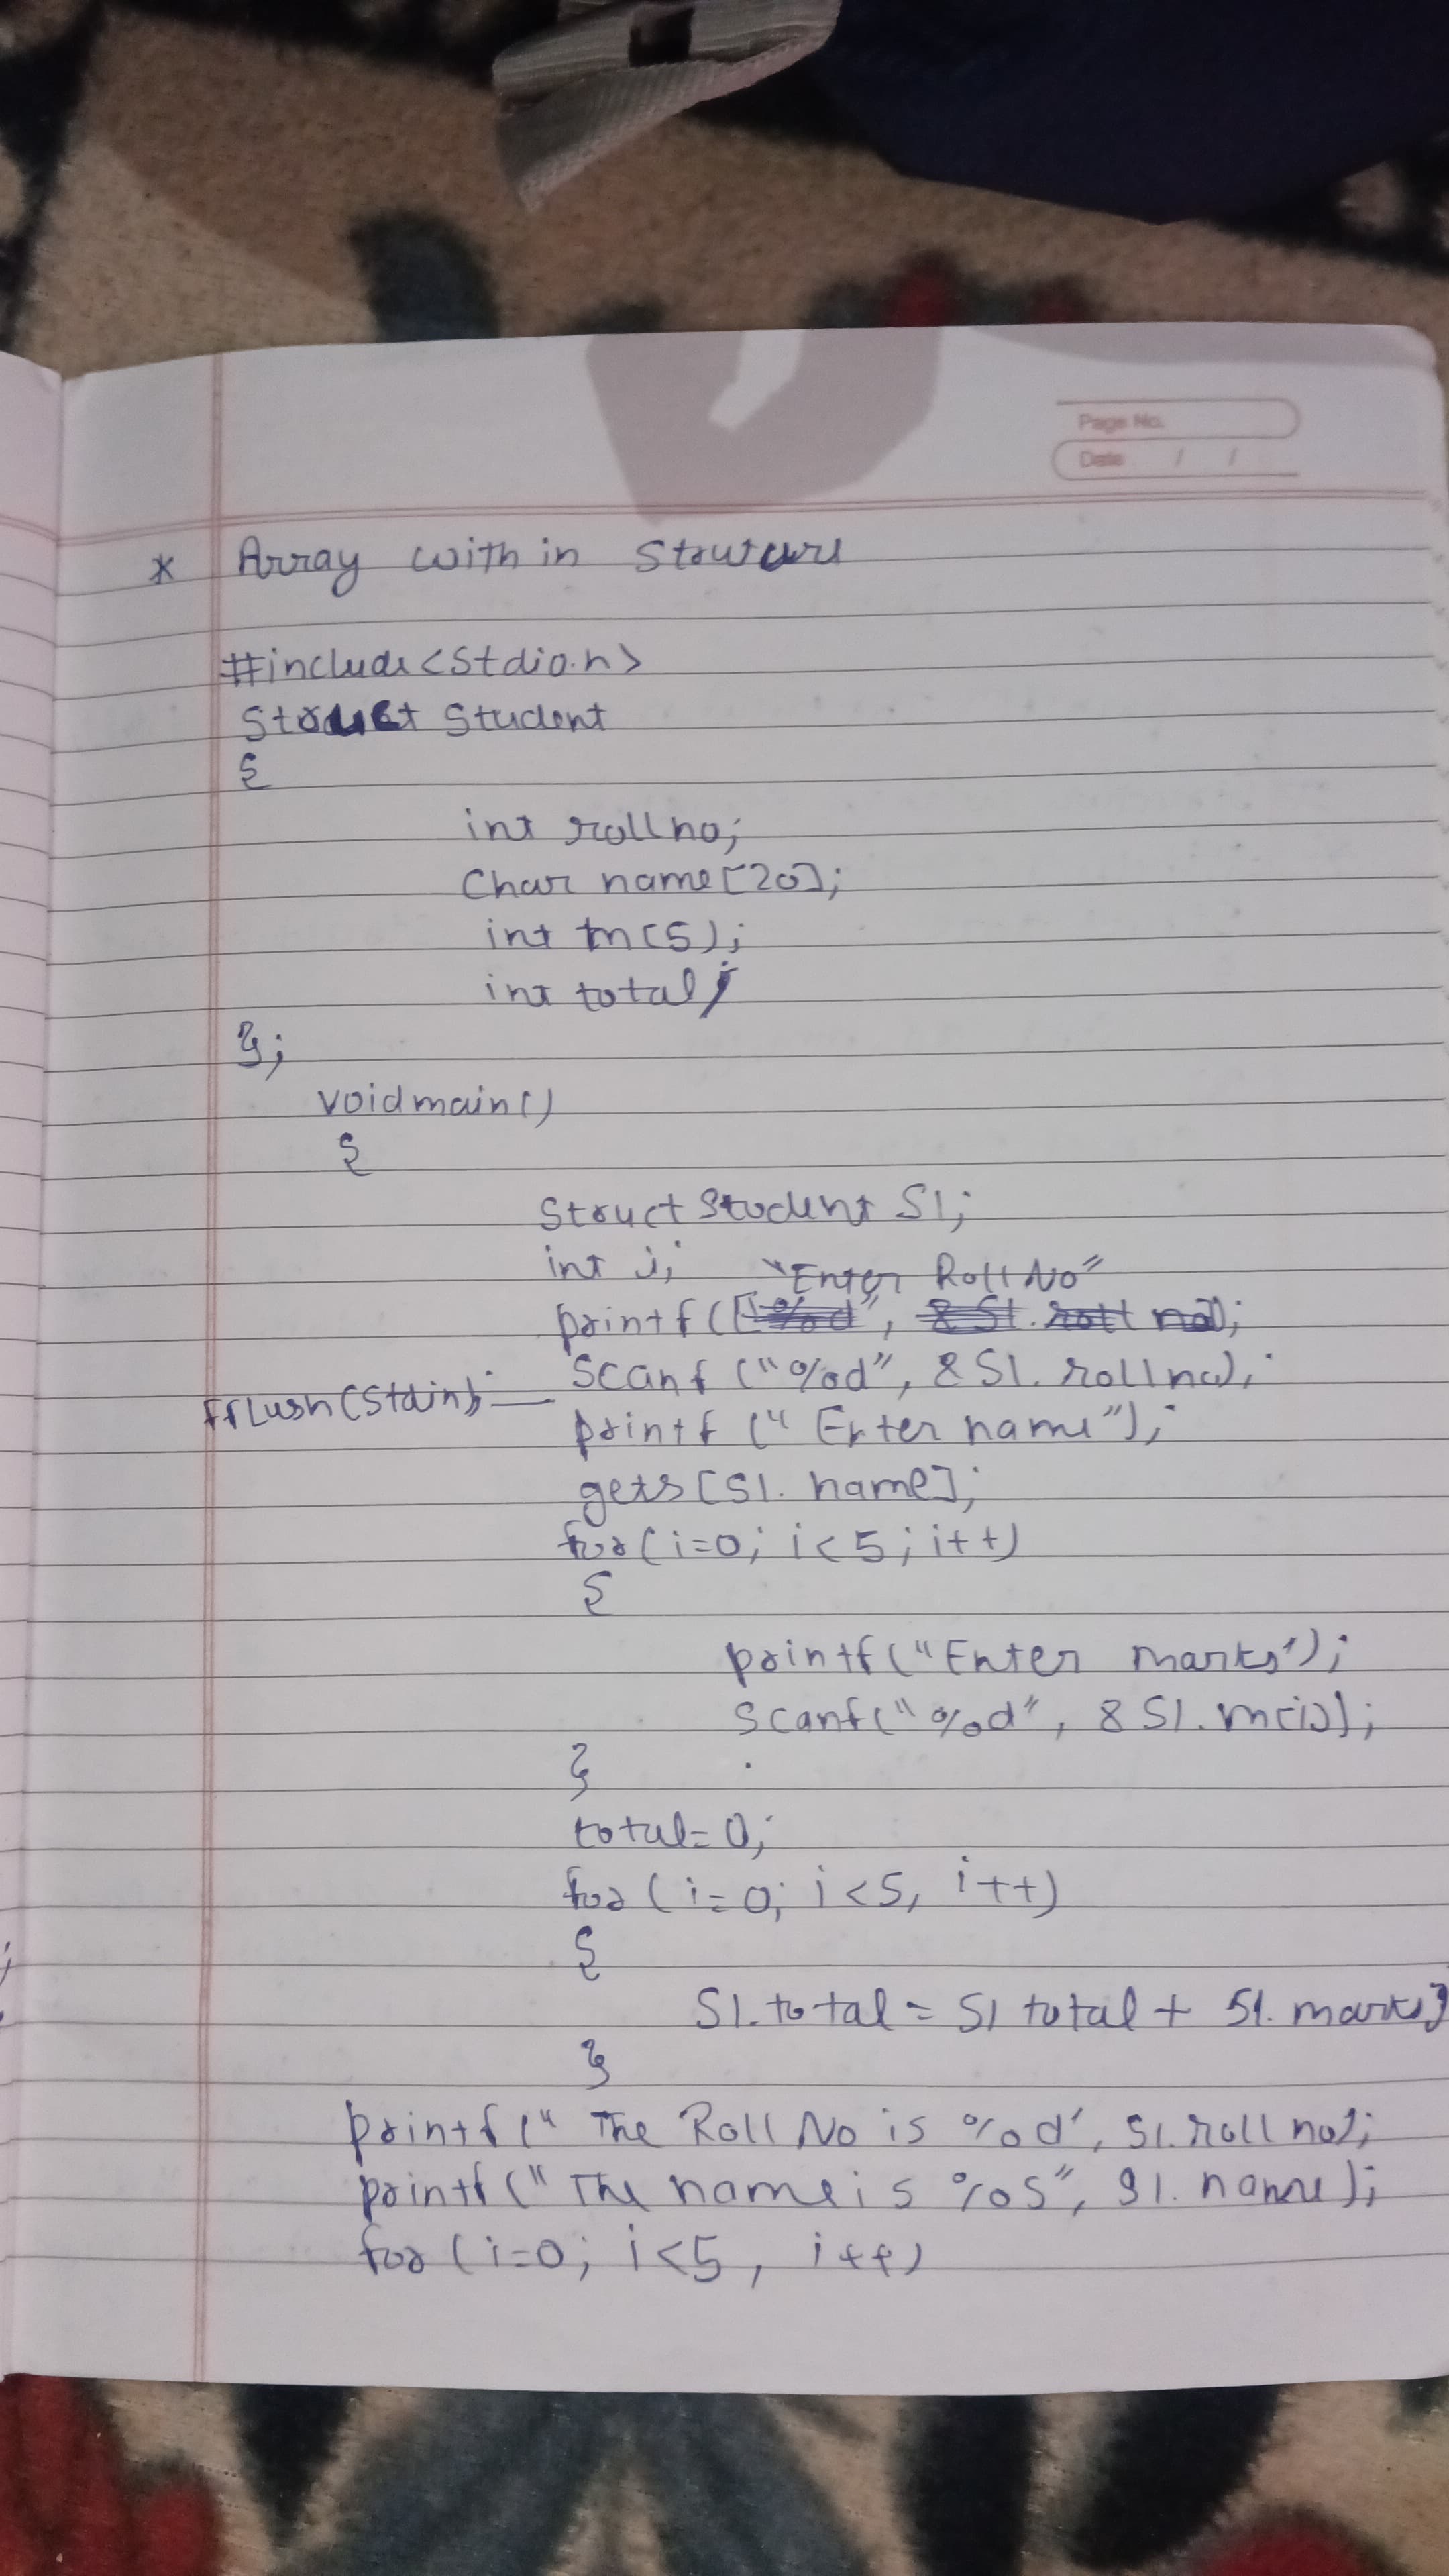 Page No.
Date / /
* Array with in
#include<stdio.h>
Struct Student
{
int rollno;
Char name[20];
int m[5];
int total;
};
void main()
{
Struct Student S1;
int i;
"Enter Roll No"
printf( );
Scanf ("%d", &S1.rollno);
fflush(stdin);
printf (" Enter name");
gets[S1. name];
for(i=0; i<5; i++)
{
printf("Enter marks');
Scanf("%d", &S1.m[i]);
}
total=0;
for (i=0; i<5, i++)
{
S1.total = S1 total + S1. marks
}
printf (" The Roll No is %d', S1.roll no);
printf (" The name is %s", S1. name);
for (i=0; i<5, i++)